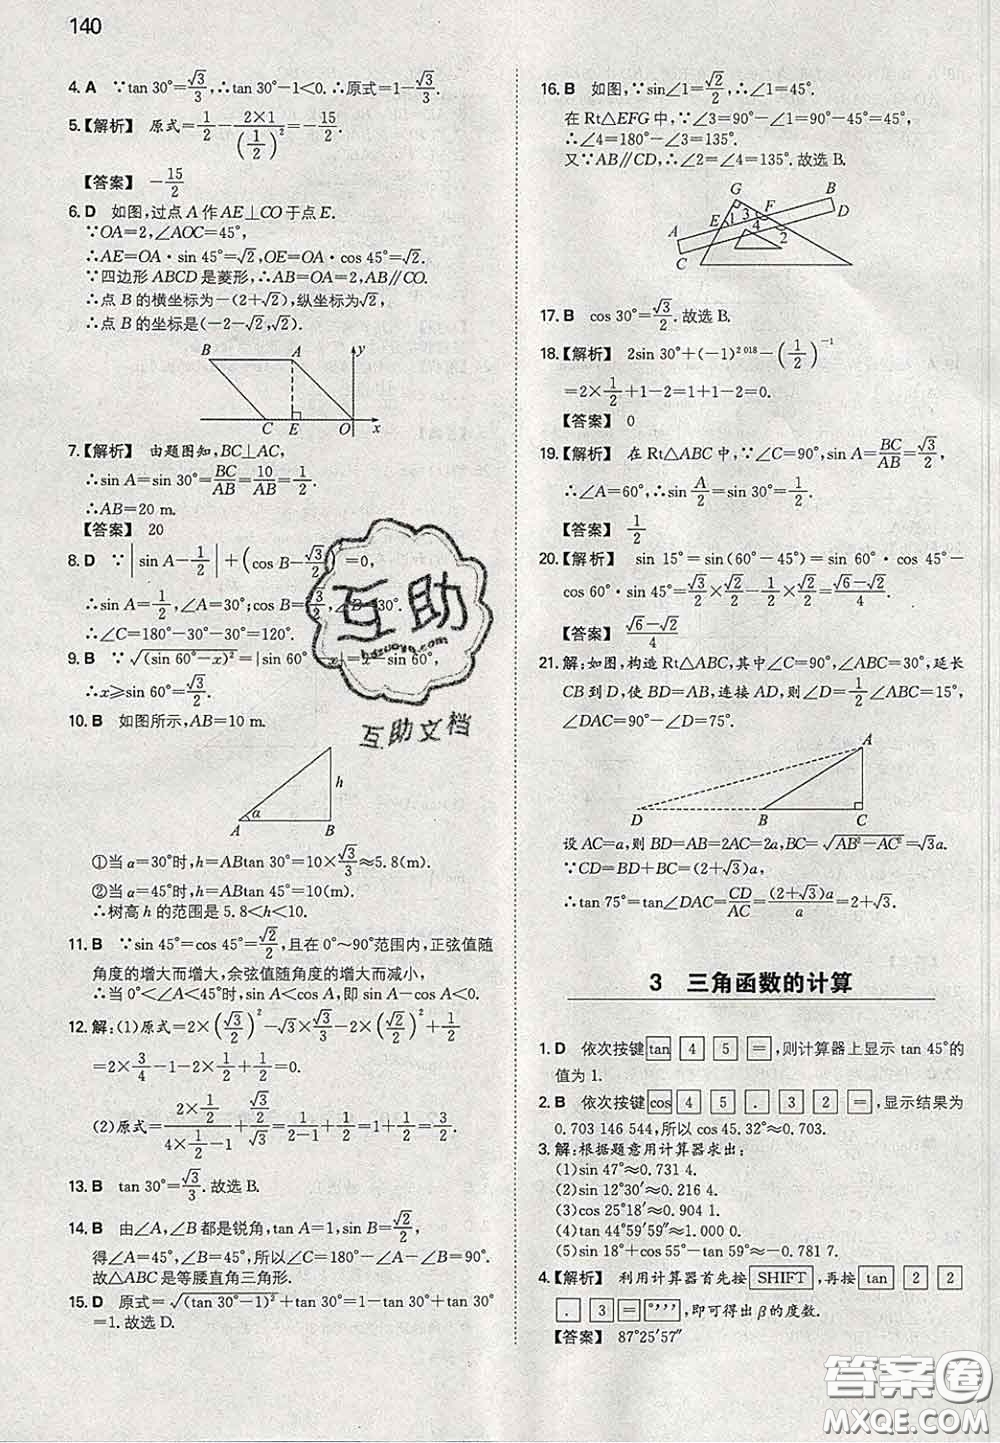 140
4. A ∵tan 30°=√3/3,∴tan 30°-1<0.∴原式=1-√3/3.
5.【解析】 原式=1/2-(2×1)/(1/2)²=-15/2.
【答案】 -15/2
6. D 如图,过点 A 作 AE⊥CO 于点 E.
∵OA=2,∠AOC=45°,
∴AE=OA·sin 45°=√2,OE=OA·cos 45°=√2.
∵四边形 ABCD 是菱形,∴AB=OA=2,AB∥CO.
∴点 B 的横坐标为-(2+√2),纵坐标为√2.
∴点 B 的坐标是(-2-√2,√2).
B A y
C E O x
7.【解析】 由题图知,BC⊥AC,
∴sin A=sin 30°=BC/AB=10/AB=1/2.
∴AB=20 m.
【答案】 20
8. D ∵|sin A-1/2|+(cos B-√3/2)=0,
∴sin A=1/2,∠A=30°;cos B=√3/2,∠B=30°.
∴∠C=180°-30°-30°=120°.
9. B ∵√(sin 60°-x)²=|sin 60°-x|=x-sin 60°,
∴x≥sin 60°=√3/2.
10. B 如图所示,AB=10 m.
h
A α B
①当 α=30°时,h=ABtan 30°=10×√3/3≈5.8(m).
②当 α=45°时,h=ABtan 45°=10(m).
∴树高 h 的范围是 5.8<h<10.
11. B ∵sin 45°=cos 45°=√2/2,且在 0°～90°范围内,正弦值随
角度的增大而增大,余弦值随角度的增大而减小,
∴当 0°<∠A<45°时,sin A<cos A,即 sin A-cos A<0.
12. 解:(1)原式=2×(√3/2)²-√3×√3/3-2×(√2/2)²+1/2
=2×3/4-1-2×2/4+1/2=0.
(2)原式=(2×1/2)/(4×1/2-1)+(√3/2)/√3=1/(2-1)+1/2=1+1/2=3/2.
13. B tan 30°=√3/3.故选 B.
14. B 由∠A,∠B 都是锐角,tan A=1,sin B=√2/2,
得∠A=45°,∠B=45°,所以∠C=180°-∠A-∠B=90°.
故△ABC 是等腰直角三角形.
15. D 原式=√(tan 30°-1)²+tan 30°=1-tan 30°+tan 30°
=1.故选 D.
16. B 如图,∵sin∠1=√2/2,∴∠1=45°.
在 Rt△EFG 中,∵∠3=90°-∠1=90°-45°=45°,
∴∠4=180°-∠3=135°.
又∵AB∥CD,∴∠2=∠4=135°.故选 B.
G B
E 1 3 F D
A 4
C 2
17. B cos 30°=√3/2.故选 B.
18.【解析】 2sin 30°+(-1)^2 018-(1/2)^-1
=2×1/2+1-2=1+1-2=0.
【答案】 0
19.【解析】 在 Rt△ABC 中,∵∠C=90°,sin A=BC/AB=√3/2,
∴∠A=60°,∴sin A/2=sin 30°=1/2.
【答案】 1/2
20.【解析】 sin 15°=sin(60°-45°)=sin 60°·cos 45°-
cos 60°·sin 45°=√3/2×√2/2-1/2×√2/2=(√6-√2)/4.
【答案】 (√6-√2)/4
21. 解:如图,构造 Rt△ABC,其中∠C=90°,∠ABC=30°,延长
CB 到 D,使 BD=AB,连接 AD,则∠D=1/2∠ABC=15°,
∠DAC=90°-∠D=75°.
A
D B C
设 AC=a,则 BD=AB=2AC=2a,BC=√(AB²-AC²)=√3a.
∵CD=BD+BC=(2+√3)a,
∴tan 75°=tan∠DAC=CD/AC=(2+√3)a/a=2+√3.
3 三角函数的计算
1. D 依次按键 tan 4 5 =,则计算器上显示 tan 45°的
值为 1.
2. B 依次按键 cos 4 5 . 3 2 =,显示结果为
0.703 146 544,所以 cos 45.32°≈0.703.
3. 解:根据题意用计算器求出:
(1)sin 47°≈0.731 4.
(2)sin 12°30′≈0.216 4.
(3)cos 25°18′≈0.904 1.
(4)tan 44°59′59″≈1.000 0.
(5)sin 18°+cos 55°-tan 59°≈-0.781 7.
4.【解析】 利用计算器首先按 SHIFT,再按 tan 2 2
. 3 = °′″,即可得出 β 的度数.
【答案】 87°25′57″
互助
hdzuoye.com
互助文档
答案圈
MXQE.COM